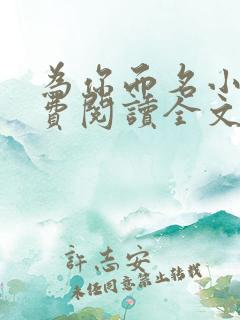 為你而名小
費閱讀全文
許志安
未經同意禁止轉載